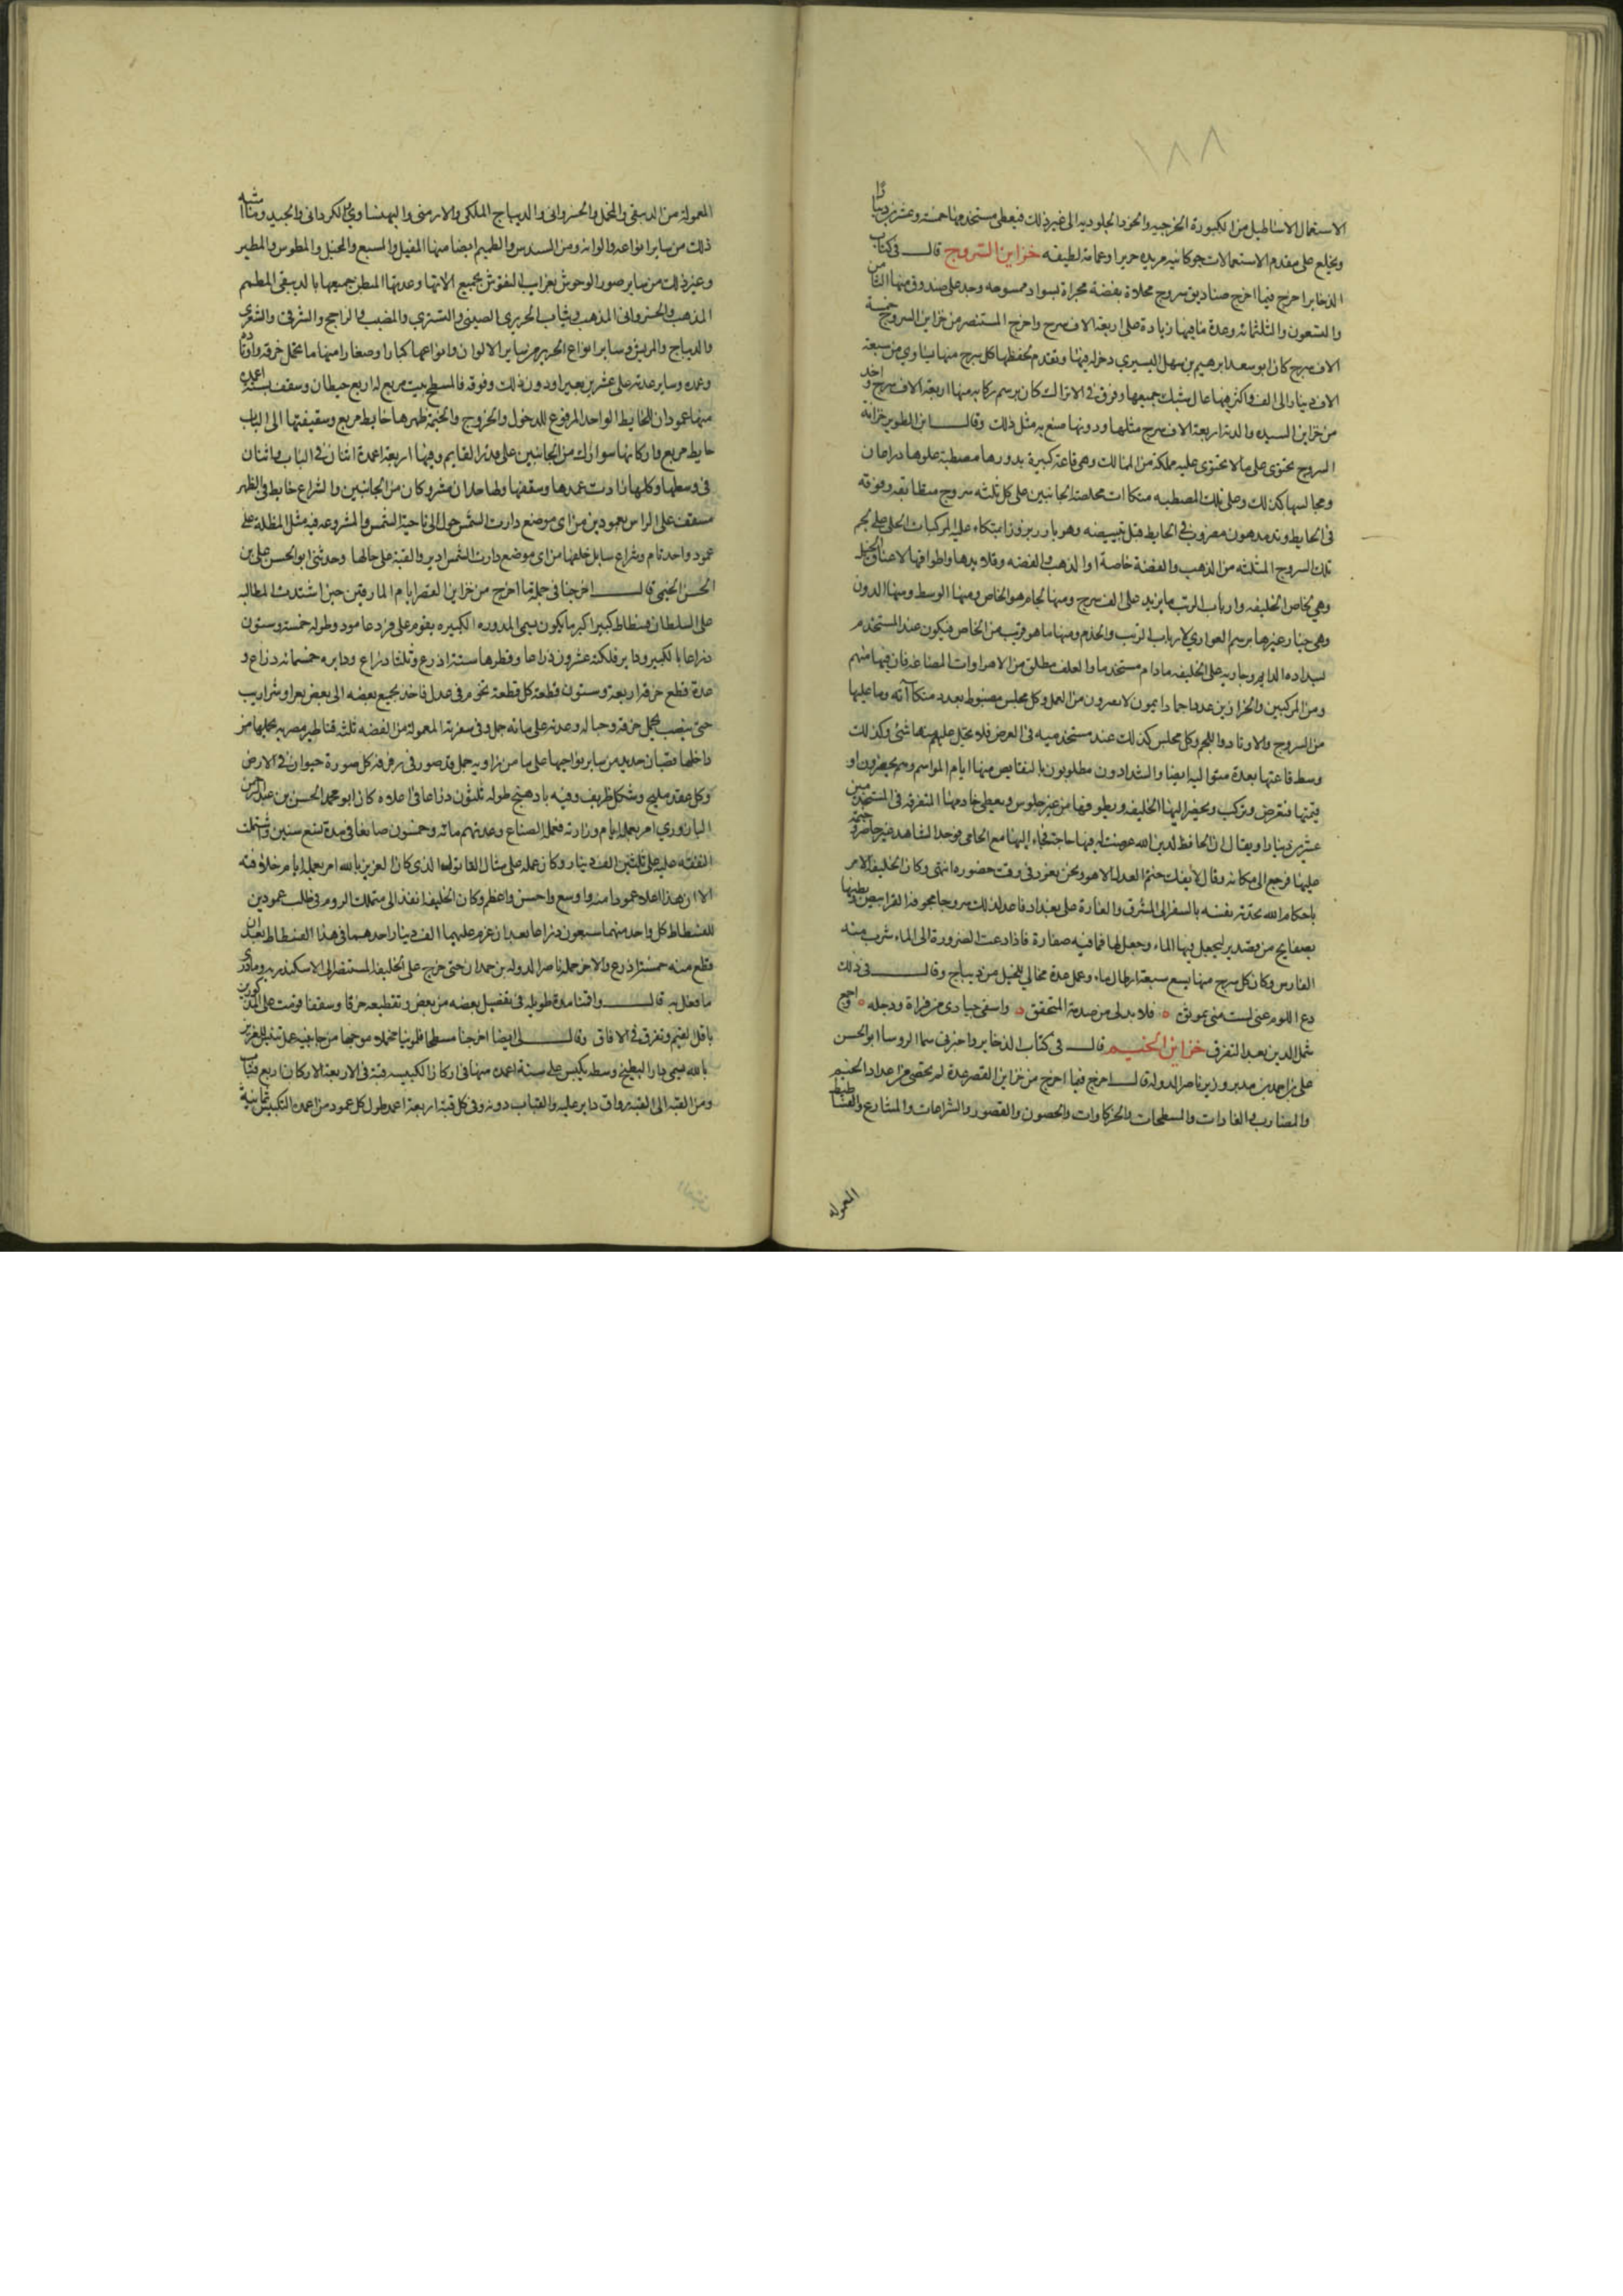 ١٨٨
الاستعمال الاساطيل من الكبورة الخرجيه والخود الجلوديه الى غير ذلك فيعطى مستخدمها خمسة وعشرين دينارا
ويخلع على مقدم الاستعمالات جوكانيه مزيده حريرا وعمامة لطيفه خزاين السروج قال فى كتاب
الذخاير اخرج فيما اخرج صناديق سروج محلاة بفضة مجراة بسواد ممسوحه وجد على صندوق منها الثامن
والتسعون والثلثمائه وعدة ما فيها زيادة على اربعة الاف سرج واخرج المستنصر من خزاين السروج خمسة
الاف سرج كان ابو سعد ابرهيم بن سهل التستري دخله فيها وتقدم بحفظها كل سرج منها يساوي من سبعة
الاف دينار الى الف واكثرهنها عال سبك جميعها وفرق فى الاتراك كان برسم ركابه منها اربعة الاف سرج واخد
من خزاين السيده والدته اربعة الاف سرج مثلها ودونها صنع به مثل ذلك وقال ابن الطوير خزانة
السروج تحتوى على ما لا يحتوى عليه مملكة من الممالك وهى قاعة كبيرة بدورها مصطبة علوها دراعان
ومجالسها كذلك وعلى تلك المصطبه متكاات مخلصة الجانبين على كل ثلثه سروج متطابقه وفوقه
فى الحايط وتد مدهون مضروب فى الحايط قبل تبييضه وهو بارز بروزا متكاء عليه المركبات الحلى على لجم
تلك السروج المثلثه من الذهب والفضة خاصة او الذهب والفضه وقلايدها واطواقها لاعناق الخيل
وهى لخاص الخليفه وارباب الرتب ما يزيد على الف سرج ومنها لجام هو الخاص ومنها الوسط ومنها الدون
وهى خيار غيرها برسم العواري لارباب الرتب والخدم ومنها ما هو قريب من الخاص فيكون عند المستخدم
بشداده الدايم وجاريه على الخليفه مادام مستخدما والعلف مطلق من الاهراوات المصاغه فان فيها منهم
ومن المركبين والخرازين عددا جما دايمون لا يفترون من العمل وكل مجلس مضبوط بعدد متكاآته وما عليها
من السروج والاوتاد واللجم وكل مجلس كذلك عند مستخدميه فى العرض فلا يختل عليهم منها شئ وكذلك
وسط قاعتها بعدة متواليه ايضا والشدادون مطلوبون بالنقايص منها ايام المواسم وهم يحضرون او
قيمتها فتعرض ويركب ويحضر اليها الخليفه ويطوفها من غير جلوس ويعطى خادمها المتفرقه فى المستخدمين
عشرين دينارا ويقال ان الحافظ لدين الله عرضت له فيها حاجة فجاء اليها مع الحامى فوجد الشاهد غير حاضر وختمه
عليها فرجع الى مكانه وقال لا يفك ختم العدل الا هو ونحن نعود فى وقت حضوره انتهى وكان الخليفه الامر
باحكام الله تحدثه نفسه بالسفر الى المشرق والغارة على بغداد فاعد لذلك سروجا مجوفة القرابيص وبطنها
بصفايح من قصدير ليجعل فيها الماء وجعل لها فما فيه صفارة فاذا دعت الضرورة الى الماء شرب منه
الفارس وكان كل سرج منها يسع سبعة ارطال ماء وعمل عدة مخالي للخيل من ديباج وقال فى ذلك
دع اللوم عنى لست منى بموثق ۞ فلا بد لى من صدمة المتحقق ۞ واسقى جيادى من فراة ودجله ۞ واجمع
شمل الدين بعد التفرق خزاين الخيم قال فى كتاب الذخاير واخبرنى سما الروسا ابو الحسن
على بن احمد بن مدبر وزير ناصر الدوله قال اخرج فيما اخرج من خزاين القصر عدة لم تحصى من اعداد الخيم
والمضارب والفازات والمسطحات والخركاوات والحصون والقصور والشراعات والمشارع والفساطيط
المعمولة
المعمولة من الدبيقى والمخمل والخسروانى والديباج الملكى والارمنى والبهنساوى والكردانى والجيد وما اشبه
ذلك من ساير انواعه والوانه ومن السندس والطميم ايضا منها المفيل والمسبع والمخيل والمطوس والمطير
وغير ذلك من ساير صور الوحوش بغرايب النقوش بجميع الاتها وعدتها المبطن جميعها بالدبيقى المطمم
المذهب والخسروانى المذهب وثياب الحريري الصينى والتستري والمضبب والراجح والشرفى والشعرى
والديباج والمريش وساير انواع الحرير من ساير الالوان وانواعها كبارا وصغارا منها ما يحمل خرقه واوتاده
وعمده وساير عدته على عشرين بعيرا ودون ذلك وفوقه فالمسطح بيت مربع له اربع حيطان وسقف بستة اعمدة
منها عمودان للحايط الواحد المرفوع للدخول والخروج والخيمة ظهرها حايط مربع وسقيفتها الى الباب
حايط مربع واركانها شوازك من الجانبين على قدر القايم وفيها اربعة اعمدة اثنان فى الباب واثنان
فى وسطها وكلها زادت عمدها وسقفها ولها حدان مشروكان من الجانبين والشراع حايط فى الظهر
مسقف على الراس بعمودين من اى موضع دارت الشمس حول الى ناحية الشمس والمشروعه فيه مثل المظلة على
عمود واحد تام وشراع سابل خلفها من اى موضع دارت الشمس ادير والقبة على حالها وحدثنى ابو الحسن على بن
الحسن الخيمى قال اخرجنا فى جملة ما اخرج من خزاين القصر ايام المارقين حين اشتدت المطالبه
على السلطان فسطاط كبيرا اكبر ما يكون يسمى المدوره الكبيره يقوم على فرد عامود وطوله خمسة وستون
ذراعا بالكبير وداير فلكته عشرون ذراعا وقطرها ستة اذرع وثلثا ذراع ودايره خمسمائه ذراع و
عدة قطع خرقه اربعة وستون قطعة كل قطعة تخزم فى عدل فاخذ يجمع بعضه الى بعض بعرا وشراريب
حتى ينصب يحمل خرقه وحباله وعدته على مائه جمل وفى سفرته المعمولة من الفضه ثلثه قناطير مصريه يحملها من
داخلها قضبان حديد من ساير نواحيها على ما من زاويه جمل قد صور فى رفرفه كل صورة حيوان فى الارض
وكل عقد مليح وشكل ظريف وفيه بادهنج طوله ثلثون ذراعا فى اعلاه كان ابو محمد الحسن بن عبد الرحمن
اليازوري امر بعمله ايام وزارته فعمله الصناع وعدتهم مائه وخمسون صانعا فى مدة تسع سنين واشتملت
النفقه عليه على ثلثين الف دينار وكان عمله على مثال القاتول الذى كان العزيز بالله امر بعمله ايام خلافته
الا ان هذا اعلا عمودا منه واوسع واحسن واعظم وكان الخليفه انفذ الى متملك الروم فى طلب عمودين
للفسطاط كل واحد منهما سبعون ذراعا بعد ان غرم عليهما الف دينار احدهما فى هذا الفسطاط بعد ان
قطع منه خمسة اذرع والاخر حمله ناصر الدوله بن حمدان حتى خرج على الخليفه المستنصر الى الاسكندريه وما درى
ما فعل به قال واقمنا مدة طويله فى تفصيل بعضه من بعض وتقطيعه خرقا وسقفنا قومت على المذكورين
باقل القيم وتفرق فى الافاق وقال لى ايضا اخرجنا مسطحا قلمونيا مخملا موجها من جانبيه عمل تنيس للعزيز
بالله يسمى دار البطيخ وسطه بكنيس على ستة اعمده منها فى اركان الكنيسه قبة فى الاربعة الاركان اربع قباب
ومن القبه الى القبه رواق داير عليه والقباب دونه وفى كل قبة اربعة اعمده طول كل عمود من اعمدة الكنيس ثمانية